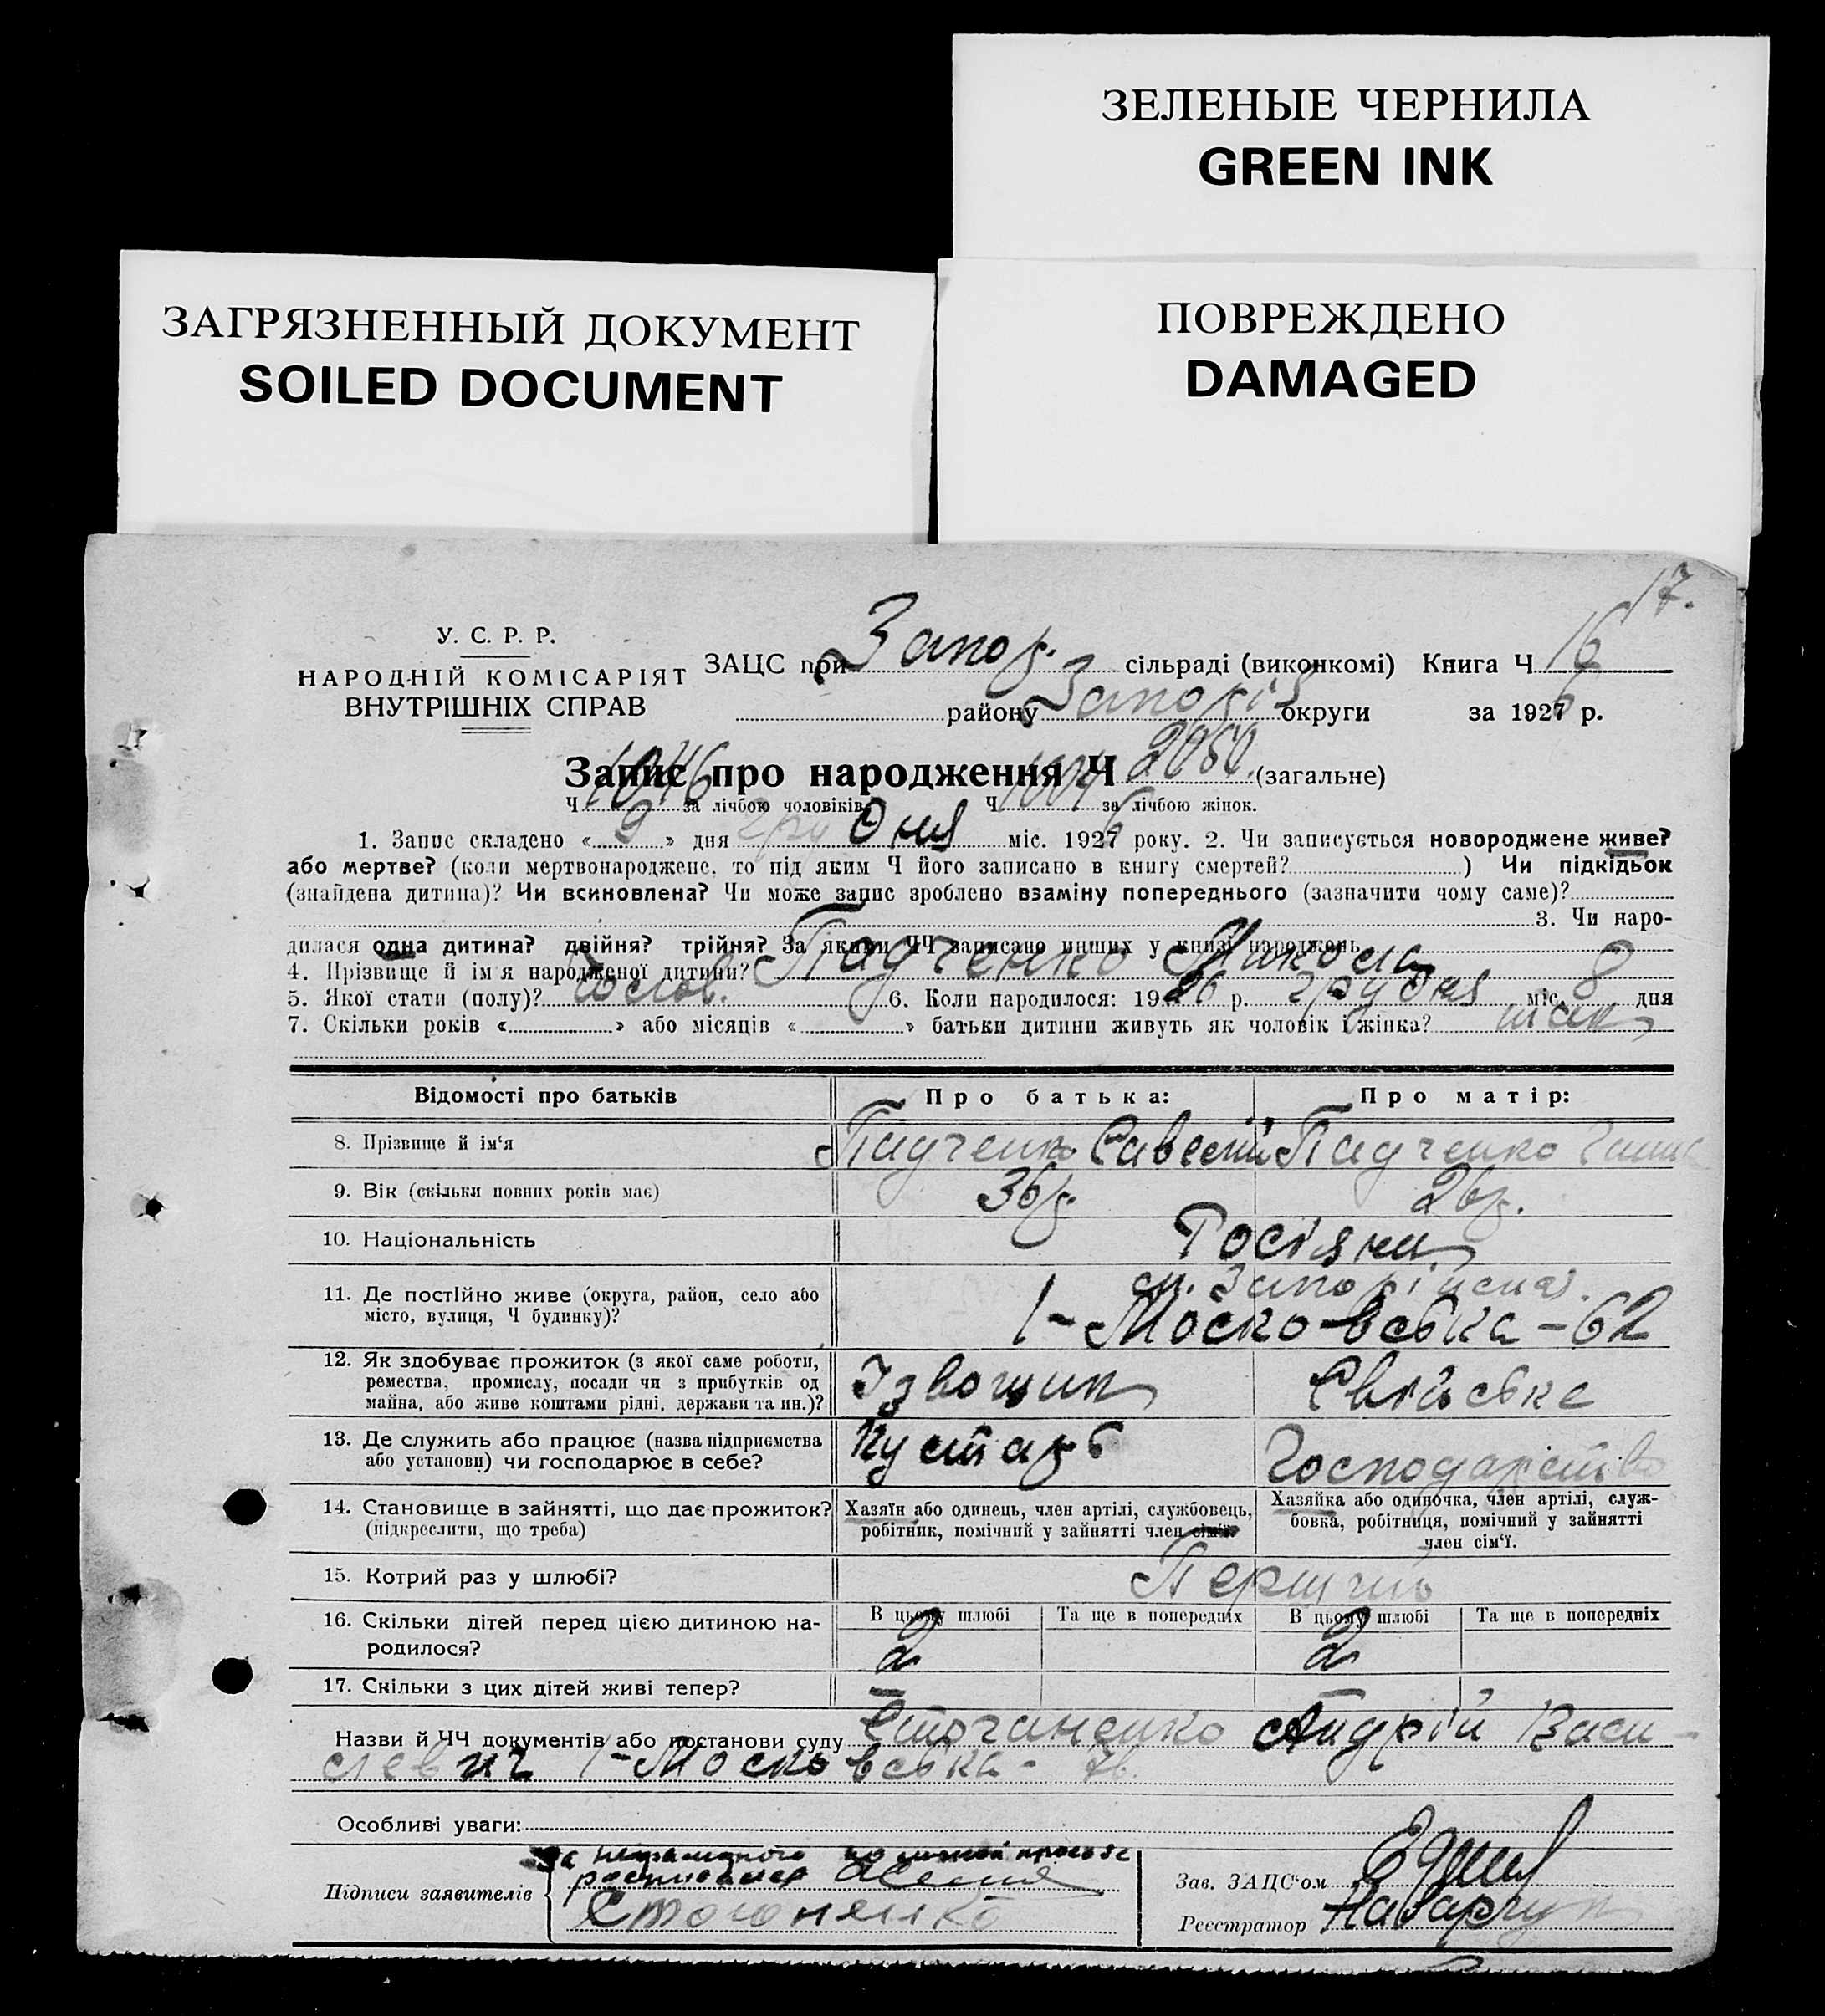 ЗЕЛЕНЫЕ ЧЕРНИЛА
GREEN INK
ЗАГРЯЗНЕННЫЙ ДОКУМЕНТ
SOILED DOCUMENT
ПОВРЕЖДЕНО
DAMAGED
17.
У. С. Р. Р.
НАРОДНІЙ КОМІСАРІЯТ
ВНУТРІШНІХ СПРАВ
ЗАЦС при Запор. сільраді (виконкомі) Книга Ч 16
району Запоріз округи за 1926 р.
Запис про народження Ч 2050 (загальне)
Ч 1046 за лічбою чоловіків Ч 1004 за лічбою жінок.
1. Запис складено « 9 » дня грудня міс. 1926 року. 2. Чи записується новороджене живе?
або мертве? (коли мертвонароджене, то під яким Ч його записано в книгу смертей? ) Чи підкідьок
(знайдена дитина)? Чи всиновлена? Чи може запис зроблено взаміну попереднього (зазначити чому саме)?
3. Чи наро-
дилася одна дитина? двійня? трійня? За якими ЧЧ записано инших у книзі народжень
4. Прізвище й ім'я народженої дитини? Падченко Микола
5. Якої стати (полу)? Чолов. 6. Коли народилося: 1926 р. грудня міс. 8 дня
7. Скільки років « » або місяців « » батьки дитини живуть як чоловік і жінка?
Відомості про батьків Про батька: Про матір:
8. Прізвище й ім'я Падченко Савелій Падченко Ганна
9. Вік (скільки повних років має) 36 р. 26 р.
10. Національність Росіяни
11. Де постійно живе (округа, район, село або
місто, вулиця, Ч будинку)?
1-Московська-62
12. Як здобуває прожиток (з якої саме роботи,
ремества, промислу, посади чи з прибутків од
майна, або живе коштами рідні, держави та ин.)?
Ізвощик Свійське
13. Де служить або працює (назва підприємства
або установи) чи господарює в себе?
Кустарь Господарство
14. Становище в зайнятті, що дає прожиток?
(підкреслити, що треба)
Хазяїн або одинець, член артілі, службовець,
робітник, помічний у зайнятті член сім'ї.
Хазяйка або одиночка, член артілі, служ-
бовка, робітниця, помічний у зайнятті
член сім'ї.
15. Котрий раз у шлюбі? Перший
16. Скільки дітей перед цією дитиною на-
родилося?
В цьому шлюбі Та ще в попередніх В цьому шлюбі Та ще в попередніх
2 2
17. Скільки з цих дітей живі тепер? — —
Назви й ЧЧ документів або постанови суду Стоганенко Андрій Васи-
левич 1-Московська-
Особливі уваги:
За неграмотного по личной просьбе
расписался
Підписи заявителів
Стогоненко
Зав. ЗАЦС'ом
Реєстратор